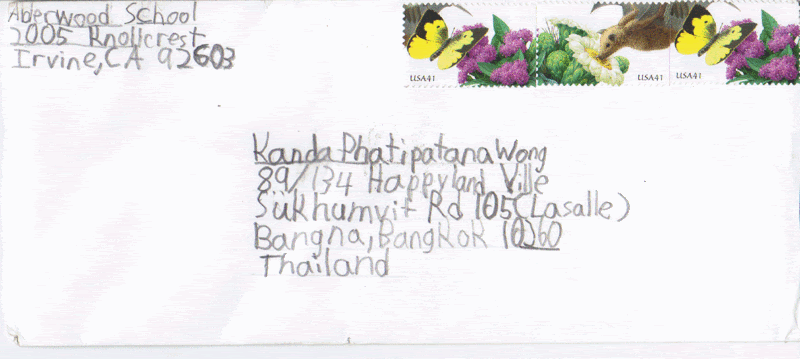 Aberwood School
2005 Knollcrest
Irvine, CA 92603
USA41
USA41
USA41
Kanda Phatipatanawong
89/134 Happyland Ville
Sukhumvit Rd 105 (Lasalle)
Bangna, Bangkok 10260
Thailand